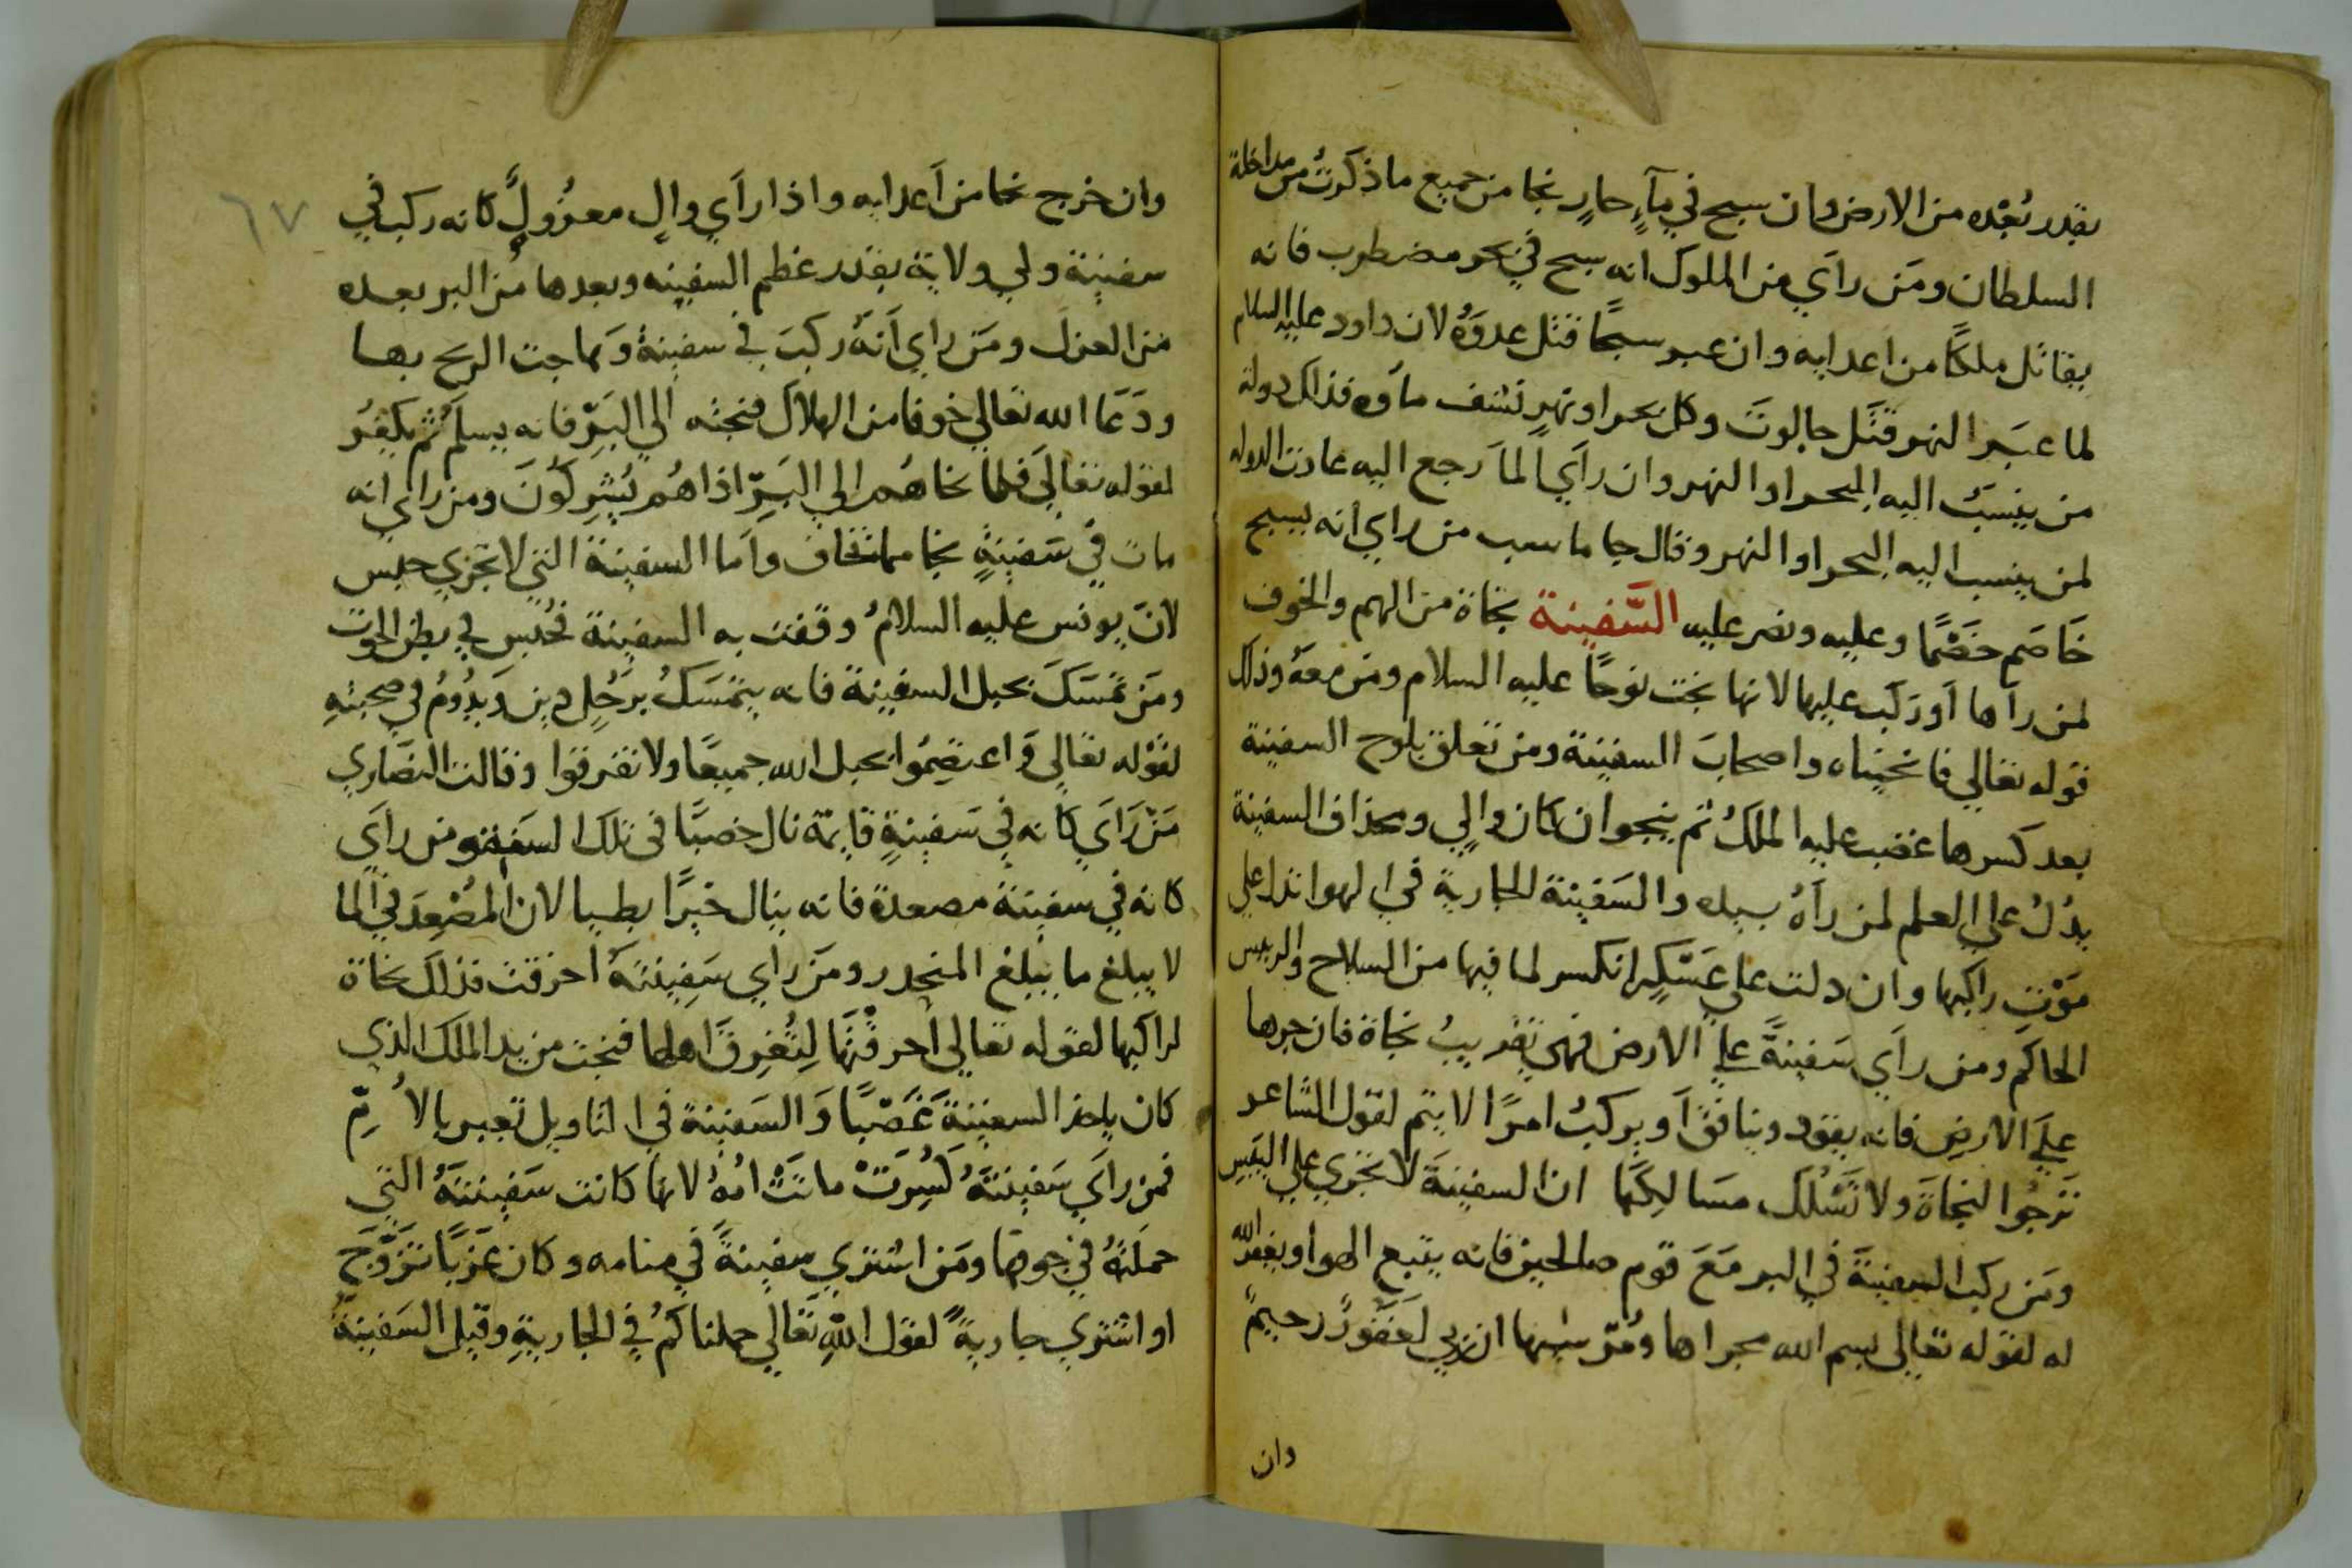 بقدر بُعْده من الارض وان سبح في مآءٍ جارٍ نجا من جميع ما ذكرتُ من مداخلة
السلطان ومَن رأي من الملوك انه سبح في بحر مضطرب فانه
يقاتل ملكًا من اعدايه وان عبر سبحًا قتل عدوَهُ لان داود عليه السلام
لما عبَر النهر قتَل جالوتَ وكل بحر او نهرٍ نشف ماؤه فذاك دولة
من ينسَب اليه البحر او النهر وان رأي الماَ رجع اليه عادت الدوله
لمن ينسب اليه البحر او النهر وقال جاماسب من راي انه يسبح
خَاصَم خَصْمًا وعليه ونصر عليه السَّفينة نجاة من الهم والخوف
لمن رآها أو ركبَ عليها لانها نجت نوحًا عليه السلام ومن معهَ وذلك
قوله تعالي فانجيناه واصحابَ السفينة ومن تعلق بلوح السفينة
بعد كسرها غضب عليه الملكُ ثم ينجوا ان كان والٍي ومجذاف السفينة
يدُلُ علي العلم لمن رآهُ بيده والسَفينة الجارية في الهوا تدل علي
مَوْتِ راكبها وان دلت علي عَسْكرٍ انكسر لما فيها من السلاح والريس
الحاكم ومن رأي سَفينةً علي الارض فهي تقريبُ نجاة فان جرها
عليَ الارض فانه يقود وينافق أو يركبُ امرًا لا يتم لقول الشاعر
تَرجُوا النجاةَ ولا تَسْلُك مسَالِكَها ان السفينةَ لا تجْري علي اليَبَسِ
ومَن ركب السفينةَ في البر مَعَ قوم صالحين فانه يتبع الهوا ويغفر الله
له لقوله تعالي بسم الله مجراها ومُرسٰيها ان ربي لغَفُورٌ رحيمٌ
وان
٦٧
وان خرج نجا من أعدايه واذا رأي والٍ معزُولٍ كانه ركب في
سفينة ولي ولاية بقدر عظم السفينه وبعدها من البر بعده
من العزل ومَن راي أَنهَ ركبَ في سفينةُ وَهاجت الريح بها
ودَعَا الله تعالي خوفا من الهلاك فنجته الي البَرّ فانه يسلَم ثم يكفُر
لقوله تعَالَي فلما نجاهُم الي البَرِّ اذا هُم يُشرِكوُنَ ومن راي انه
مات في سَفينةٍ نجا مما تخاف وأما السفينة التي لا تجري حبس
لانّ يونس عليه السلامُ وقفت به السفينة فحُبس في بطن الحوت
ومَن تمسَكَ بحبل السفينة فانه يتمَسَكُ برَجُلٍ دين وَيدُومُ في صحبتهِ
لقَوْله تعَالي وَاعتصِمُوا بحبل الله جميعًا ولا تفرقوا وقالت النصَاري
مَن رَأيَ كانه في سَفينةٍ قايمة نال خصبًا في تلك السفينة ومن رأيَ
كانه في سفينة مصعدة فانه ينال خيرًا بطيا لان المُصْعِد في الما
لا يبلغ ما يبلغ المنحدر ومَن راي سَفينتهَ اخرقت فذلكَ نجاة
لراكبها لقوله تعالي أخرقْتَها لتُغِرقَ اهلها فنجت من يد الملك الذي
كان ياخذ السفينةَ غَصْبًا وَالسَفينة في التاويل تعبر بالأُمّ
فمن رأيَ سَفينتَهُ كُسِرَتْ ماتَتْ امُهُ لانها كانت سَفينتَهُ التي
حملَتهُ في جوفها ومَن اشتري سفينةً في منامه وكان عَزبًا تزَوَّجَ
او اشتري جاريةً لقول اللّهِ تَعَالي حملناكمُ في الجاريةِ وقيل السَفينةُ